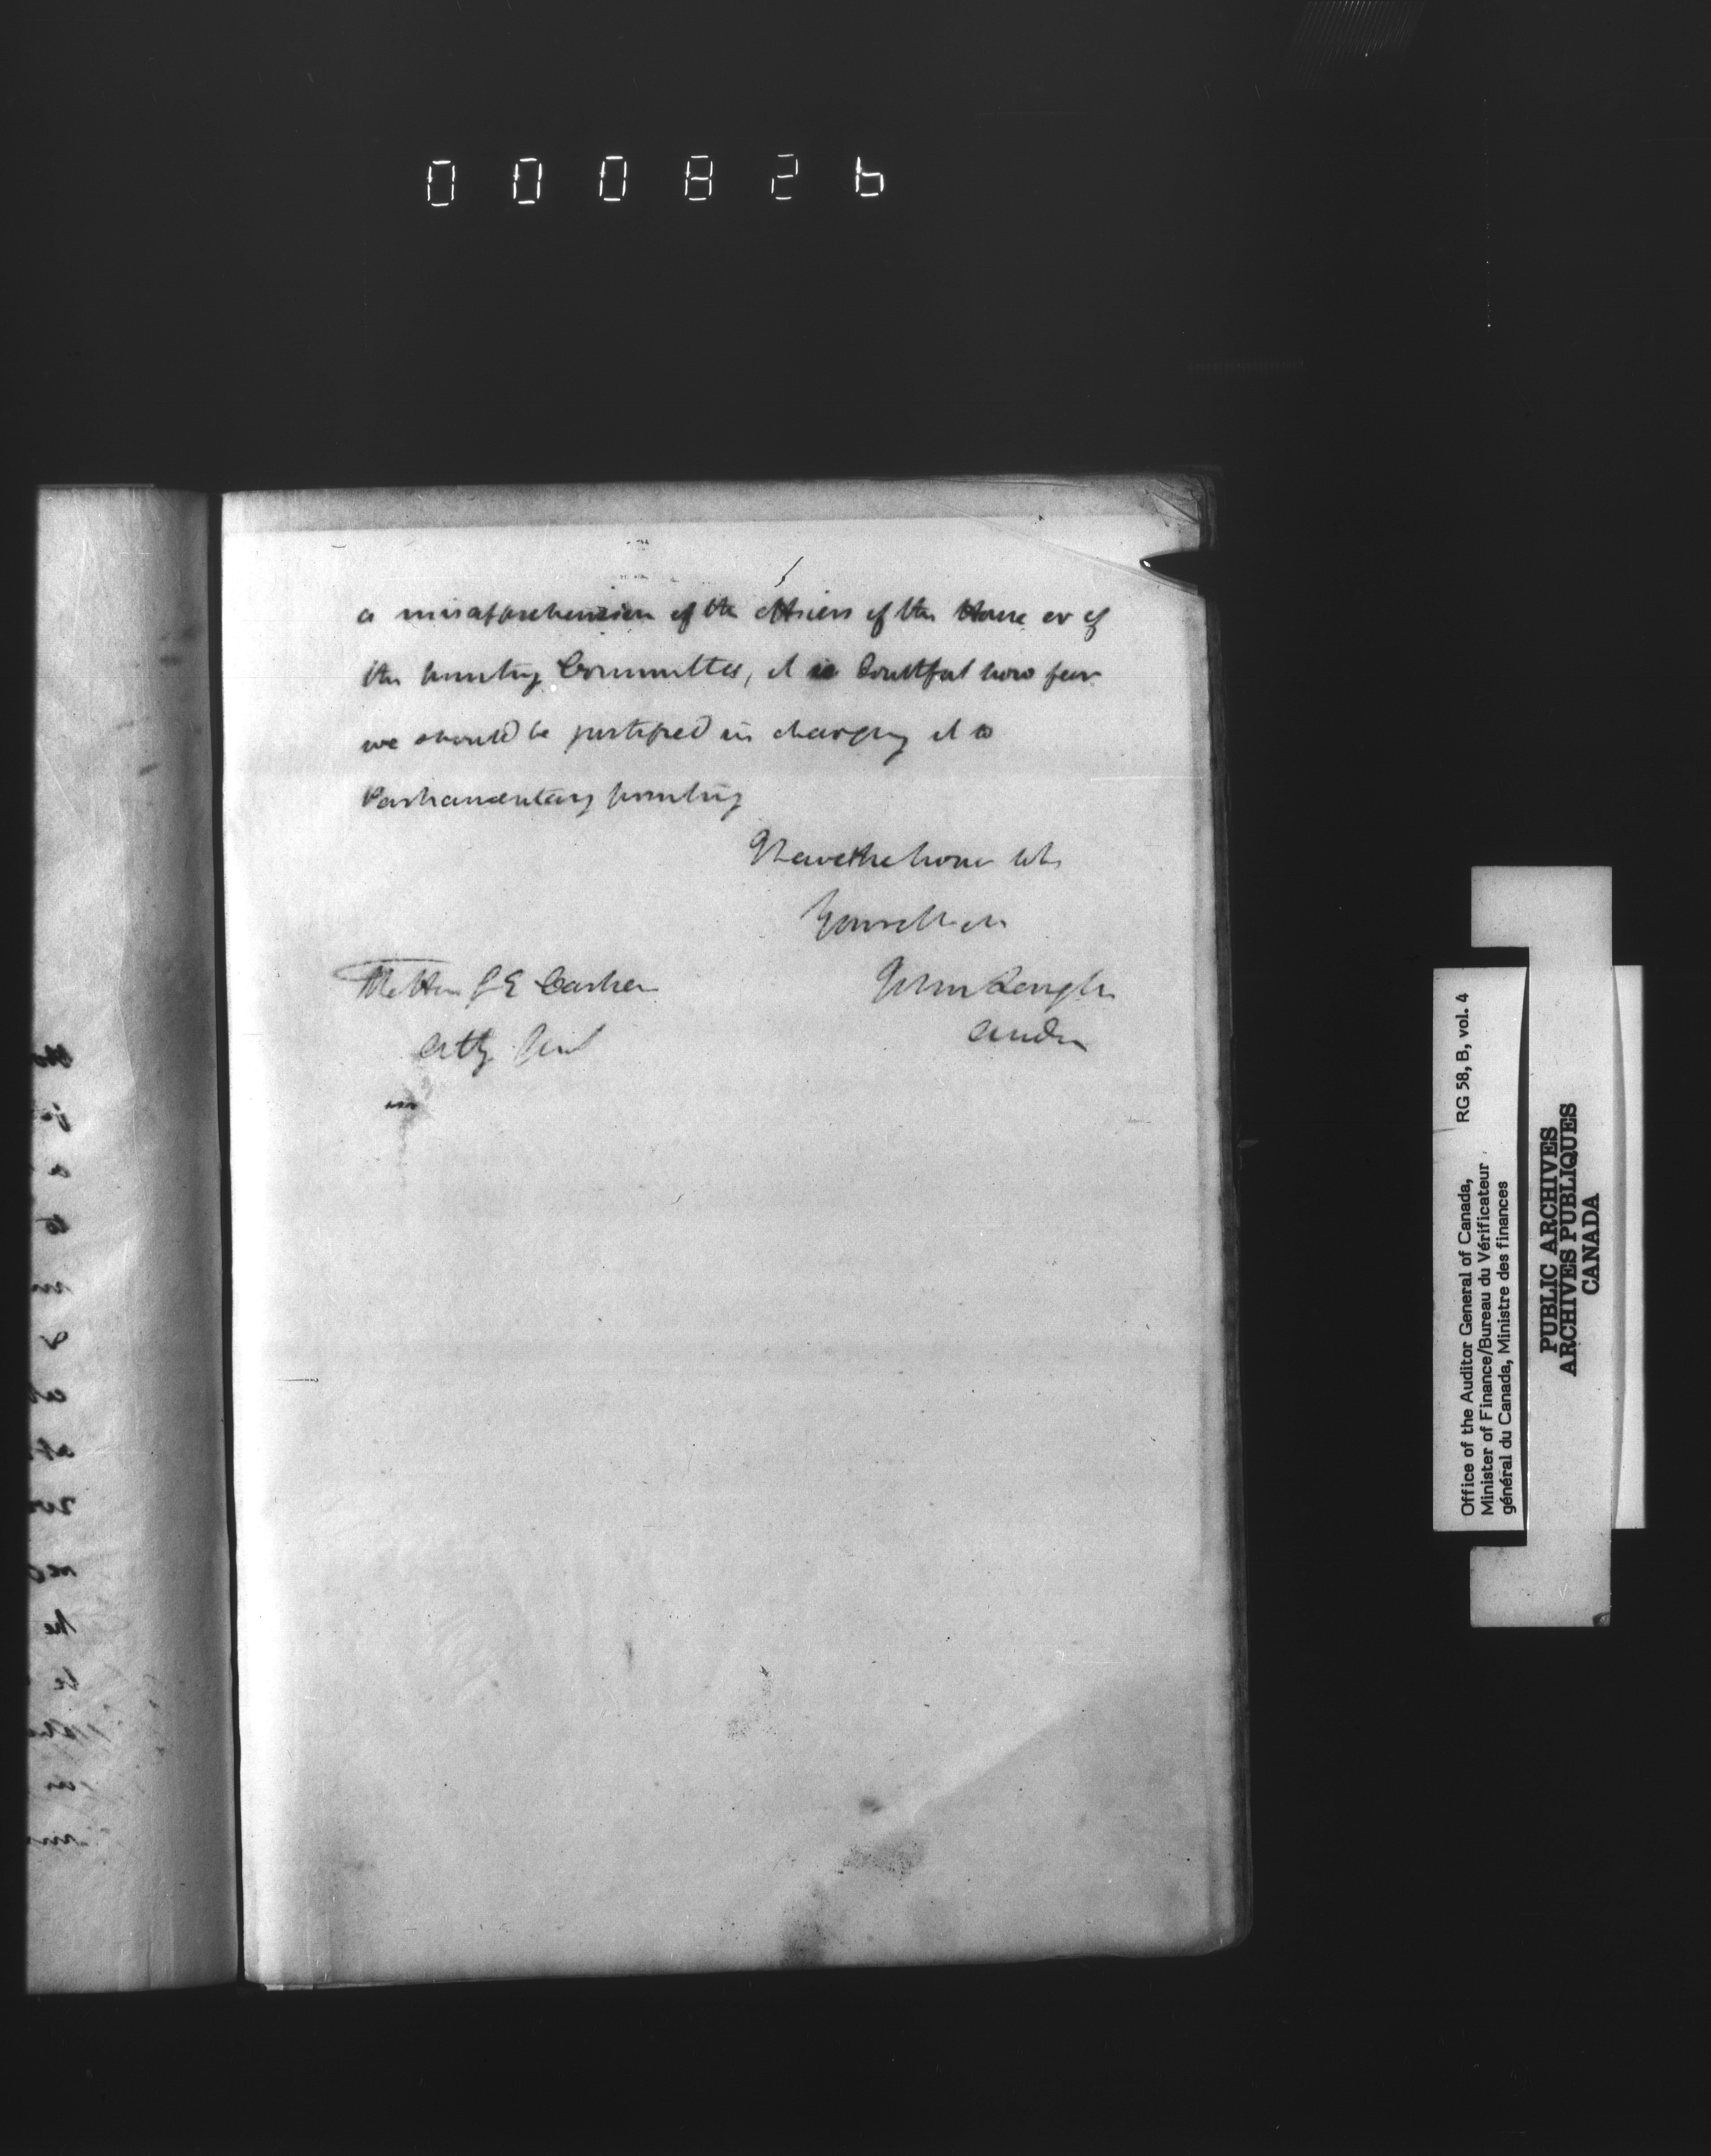 000826
a misapprehension of the Officers of the House or of
the printing Committee, it is doubtful how far
we should be justified in charging it to
Parliamentary printing
I have the honor to be
Your Obt
The Hon G E Cartier
John Langton
Atty Genl
Auditor
RG 58, B, vol. 4
Office of the Auditor General of Canada,
Minister of Finance/Bureau du Vérificateur
général du Canada, Ministre des finances
PUBLIC ARCHIVES
ARCHIVES PUBLIQUES
CANADA